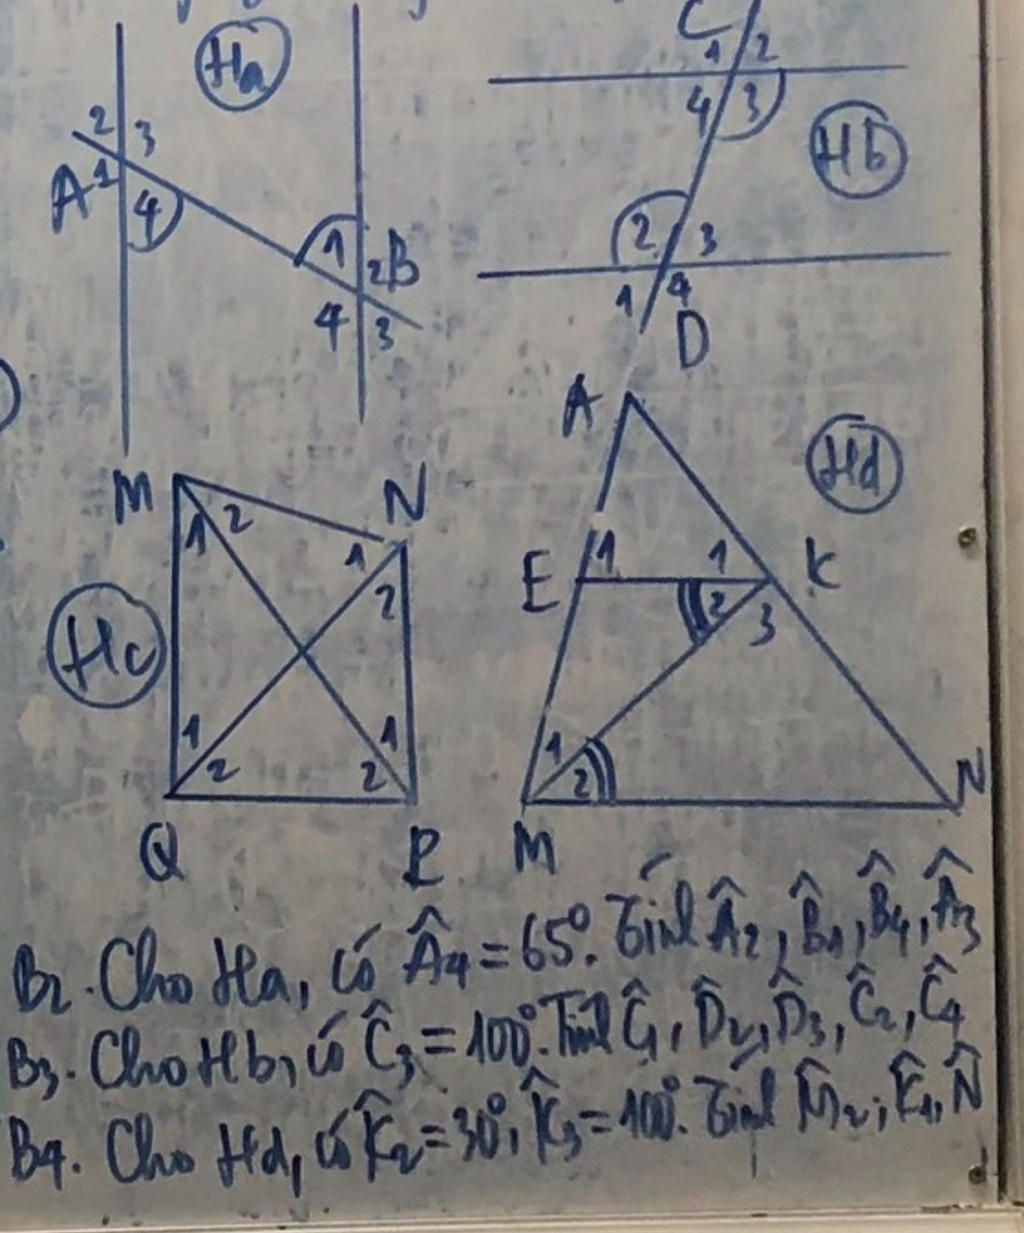 Ha
2 3
A 1
4
1
2 B
4 3
C
1 2
4 3
Hb
2 3
1 4
D
M
1 2
N
1
2
Hc
1
2
1
2
Q
P
A
Hd
E 1
1 K
2 3
1
2
M
N
B2. Cho Ha, có Â4 = 65°. Tính Â2, B̂1, B̂4, Â3
B3. Cho Hb, có Ĉ3 = 100°. Tính Ĉ1, D̂2, D̂3, Ĉ2, Ĉ4
B4. Cho Hd, có K̂2 = 30°, K̂3 = 100°. Tính M̂2, K̂1, N̂